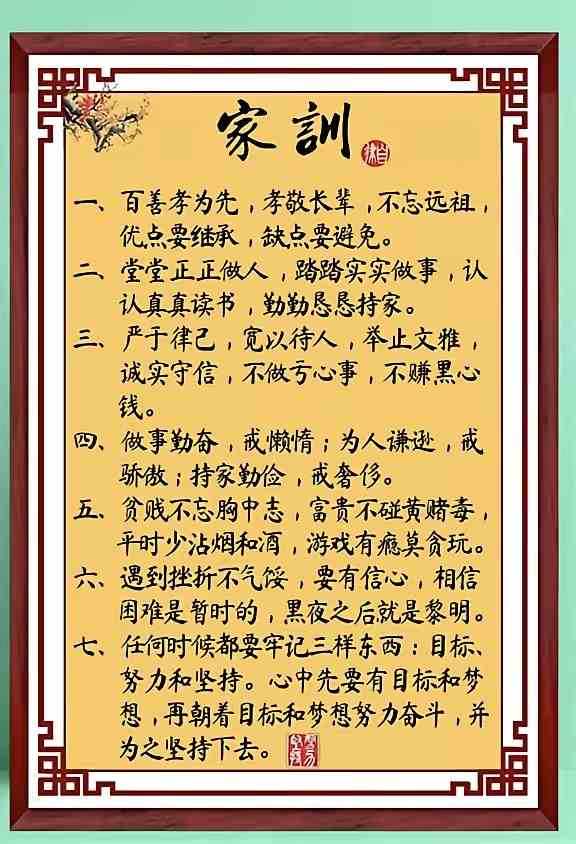 家訓
自律
一、百善孝为先，孝敬长辈，不忘远祖，
优点要继承，缺点要避免。
二、堂堂正正做人，踏踏实实做事，认
认真真读书，勤勤恳恳持家。
三、严于律己，宽以待人，举止文雅，
诚实守信，不做亏心事，不赚黑心
钱。
四、做事勤奋，戒懒惰；为人谦逊，戒
骄傲；持家勤俭，戒奢侈。
五、贫贱不忘胸中志，富贵不碰黄赌毒，
平时少沾烟和酒，游戏有瘾莫贪玩。
六、遇到挫折不气馁，要有信心，相信
困难是暂时的，黑夜之后就是黎明。
七、任何时候都要牢记三样东西：目标、
努力和坚持。心中先要有目标和梦
想，再朝着目标和梦想努力奋斗，并
为之坚持下去。